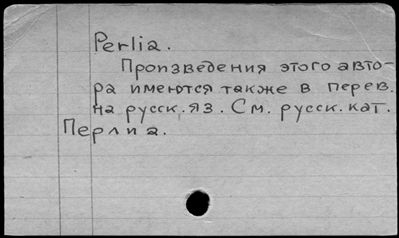 Perlia.
Произведения этого авто-
ра имеются также в перев.
на русск. яз. См. русск. кат.
Перлиа.